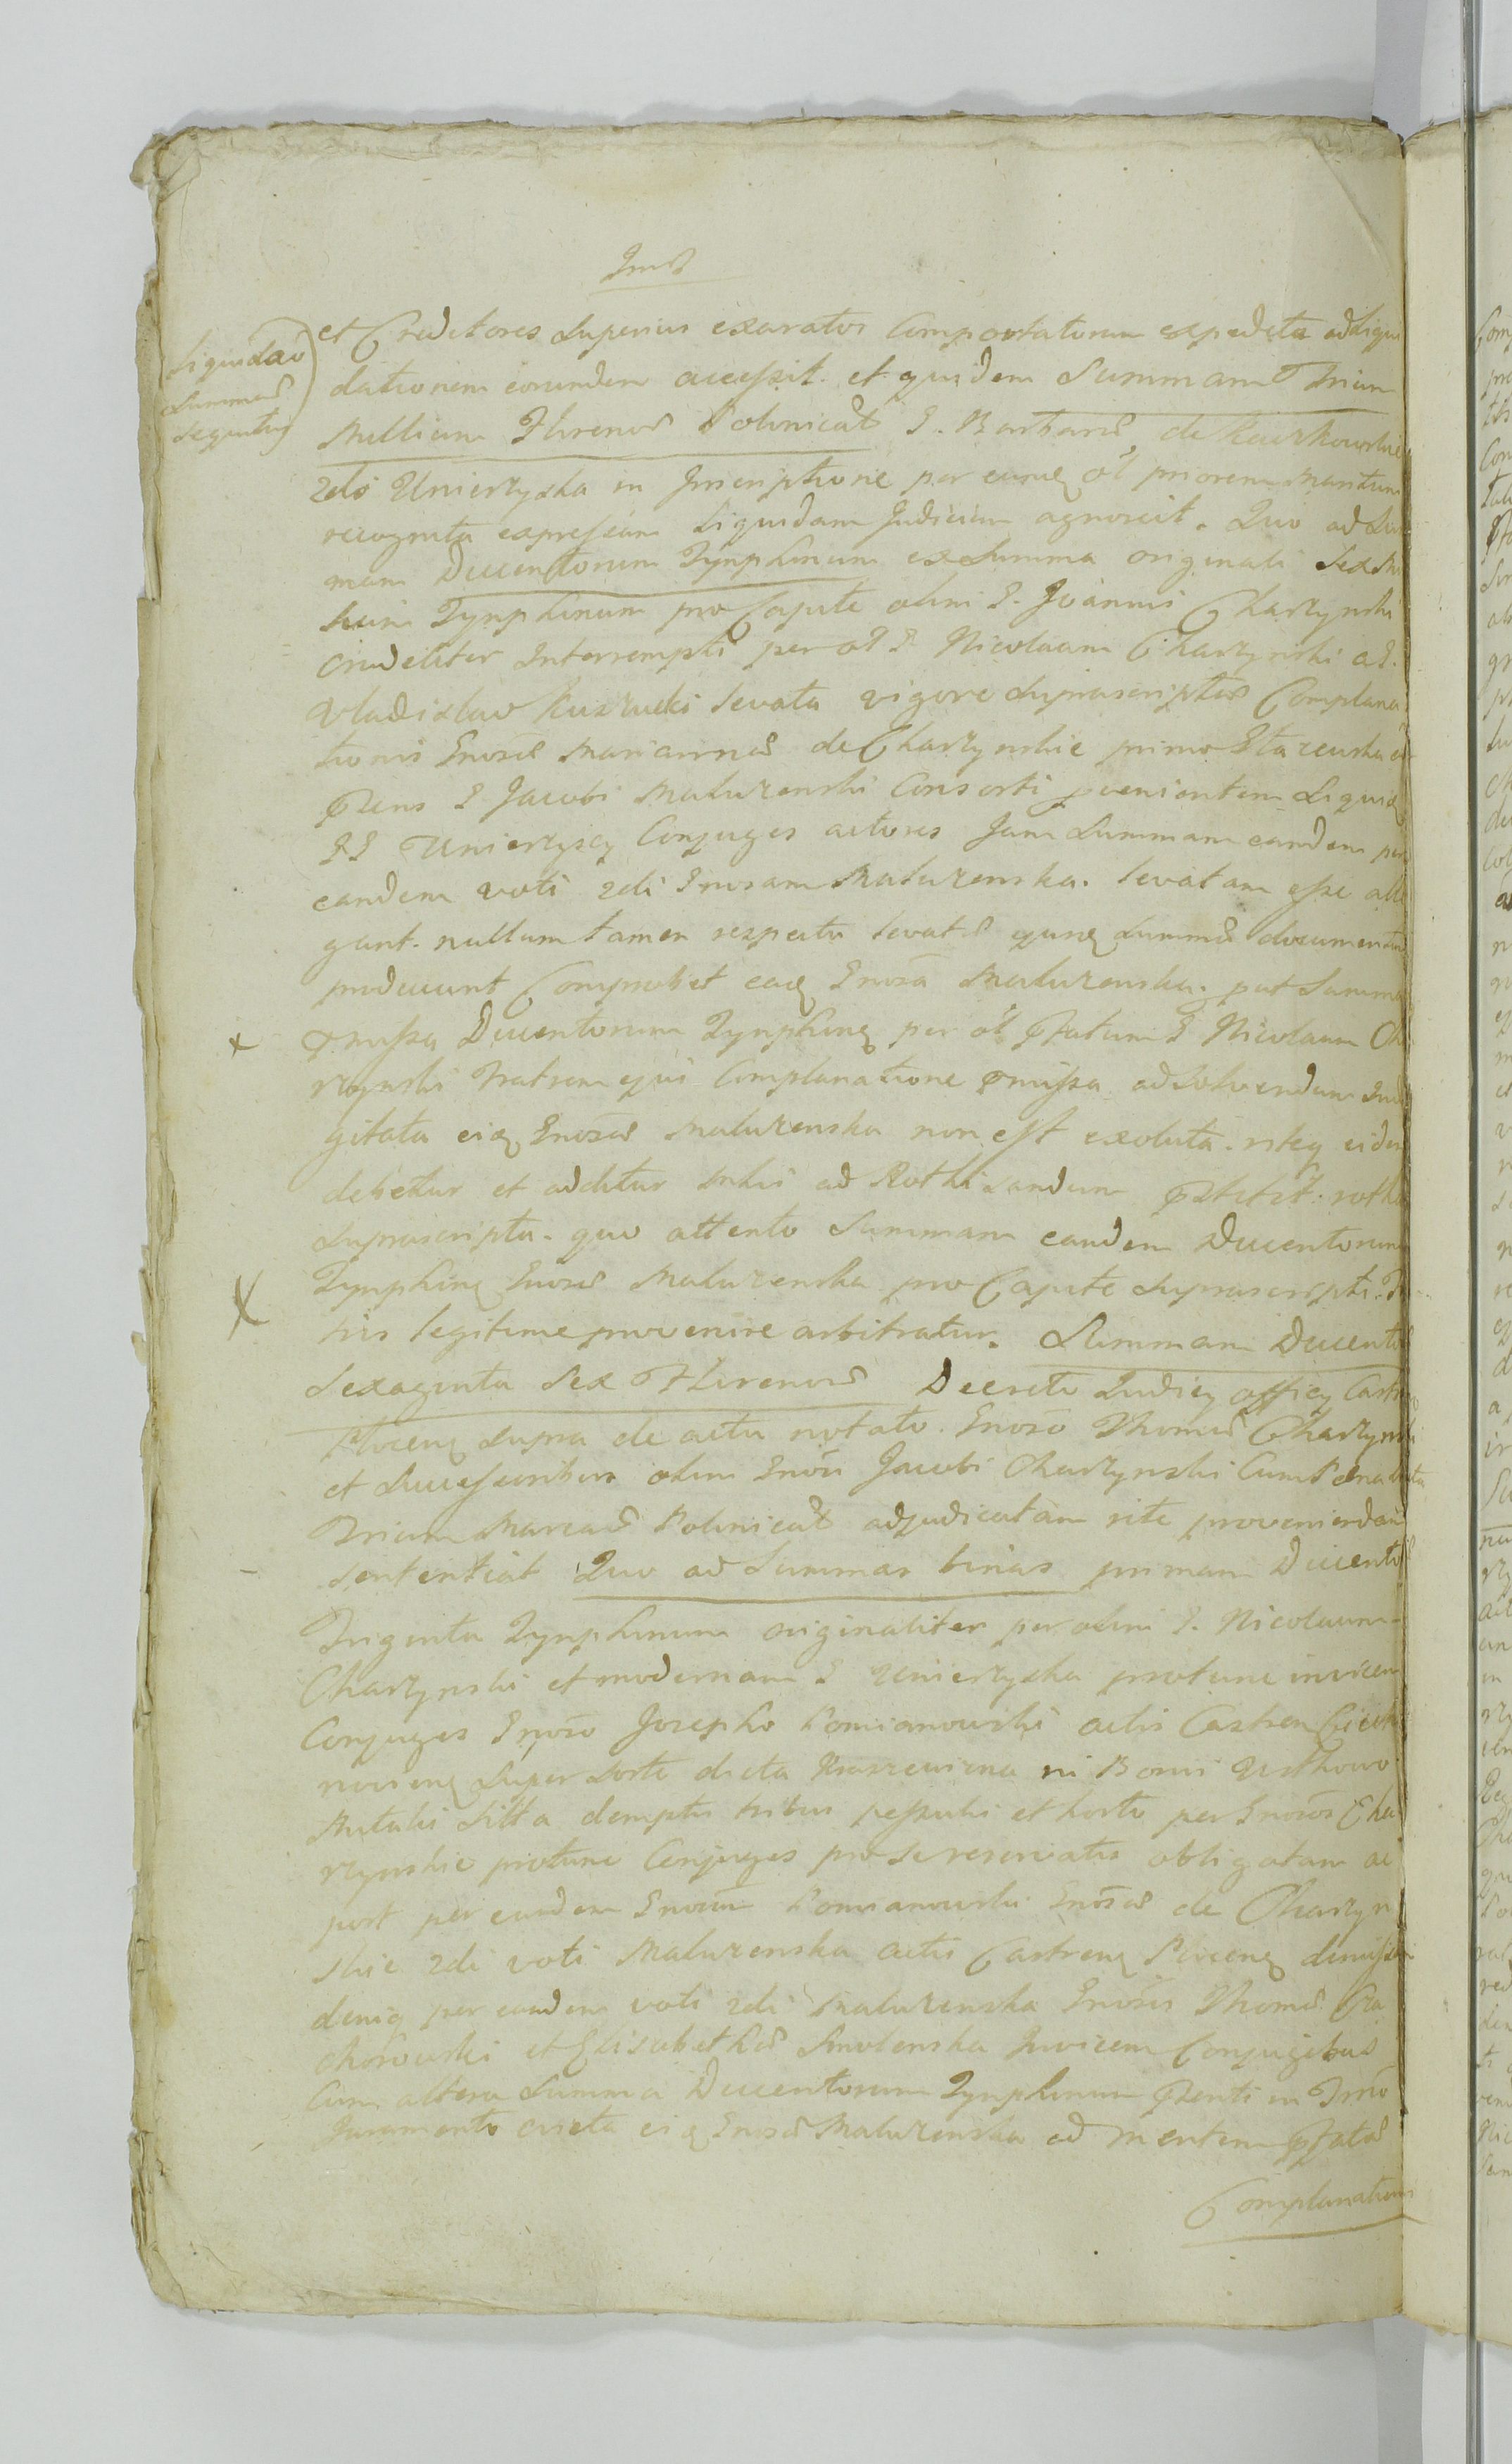 et Creditores Superius exaratos Comportatorum expedita ad Liqui
Liquidao
Summae
sequntur
dationem eorundem accessit. et quidem Summam Trium
Millium Florenor Polonical G. Barbarae de
2do Unierzyska in Inscriptione per eunq ol priorem Maritum
recognita expressam Liquidam Judicium agnoscit. Quo ad Su
mam Ducentorum Tynphonum ex Summa originali Sex Mi
lium Tynphonum pro Capite olim G. Joannis Charzynski
crudeliter Interrempti per ol G Nicolaum Charzynski a G.
Vladislao levata vigore Suprascriptae Complana
tionis Gnosae Mariannae de Charzynskie primo
G Jacobi Maluzenski Consorti provenientem Liquid
GG Unierzyscy Conjuges actores Jam Summam eandem per
eandem voti 2di Gnosam Maluzenska. levatam esse alle
gant. nullum tamen respectu levatae ejusq Summae documentum
producunt Comprobet eaq Gnosa Maluzenska. put Summa
pmissa Ducentorum Tynphonq per ol pfatum G Nicolaum Cha
rzynski Fratrem ejus Complanatione pmissa ad Solvendum
gitata eiq Gnosae Maluzenska non est exoluta. iteq eidem
debetur et additur ad Rothisandum rotha
Suprascripta. quo attento Summam eandem Ducentorum
Tynphonq Gnosae Maluzenska pro Capite Suprascripti Fra
tris legitime provenire arbitratur. Summam Ducento
Sexaginta Sex Florenor Decreto Judicy officy Castr
Plocenq Supra de actu notato. Gnoso Thomae Charzynski
et Successoribus olim Gnosi Jacobi Charzynski Cum Paena
Trium Marcar Polonical adjudicatam rite proveniendam
sententiat Quo ad Summas binas primam Ducento
Triginta Tynphonum originaliter per olim G. Nicolaum
Charzynski et modernam G Unierzyska protunc invicem
Conjuges Gnoso Josepho Pomianowski actis Castren Ciecha
novienq Super Sorte dicta in Bonis
Sitta demptis tribus et horto per Gnosos Cha
rzynskie protunc Conjuges pro se reservatis obligatam ac
post per eundem Gnosum Pomianowski Gnosae de Charzyn
skie 2di voti Maluzenska actis Castrenq Plocenq dimissam
deniq per eandem voti 2di Maluzenska Gnosis Thomae
chorowski et Elisabethae Smolenska Invicem Conjugibus
Cum altera Summa Ducentorum Tynphonum
Juramento eiq Gnosae Maluzenska ad mentem pfatae
Complanationis